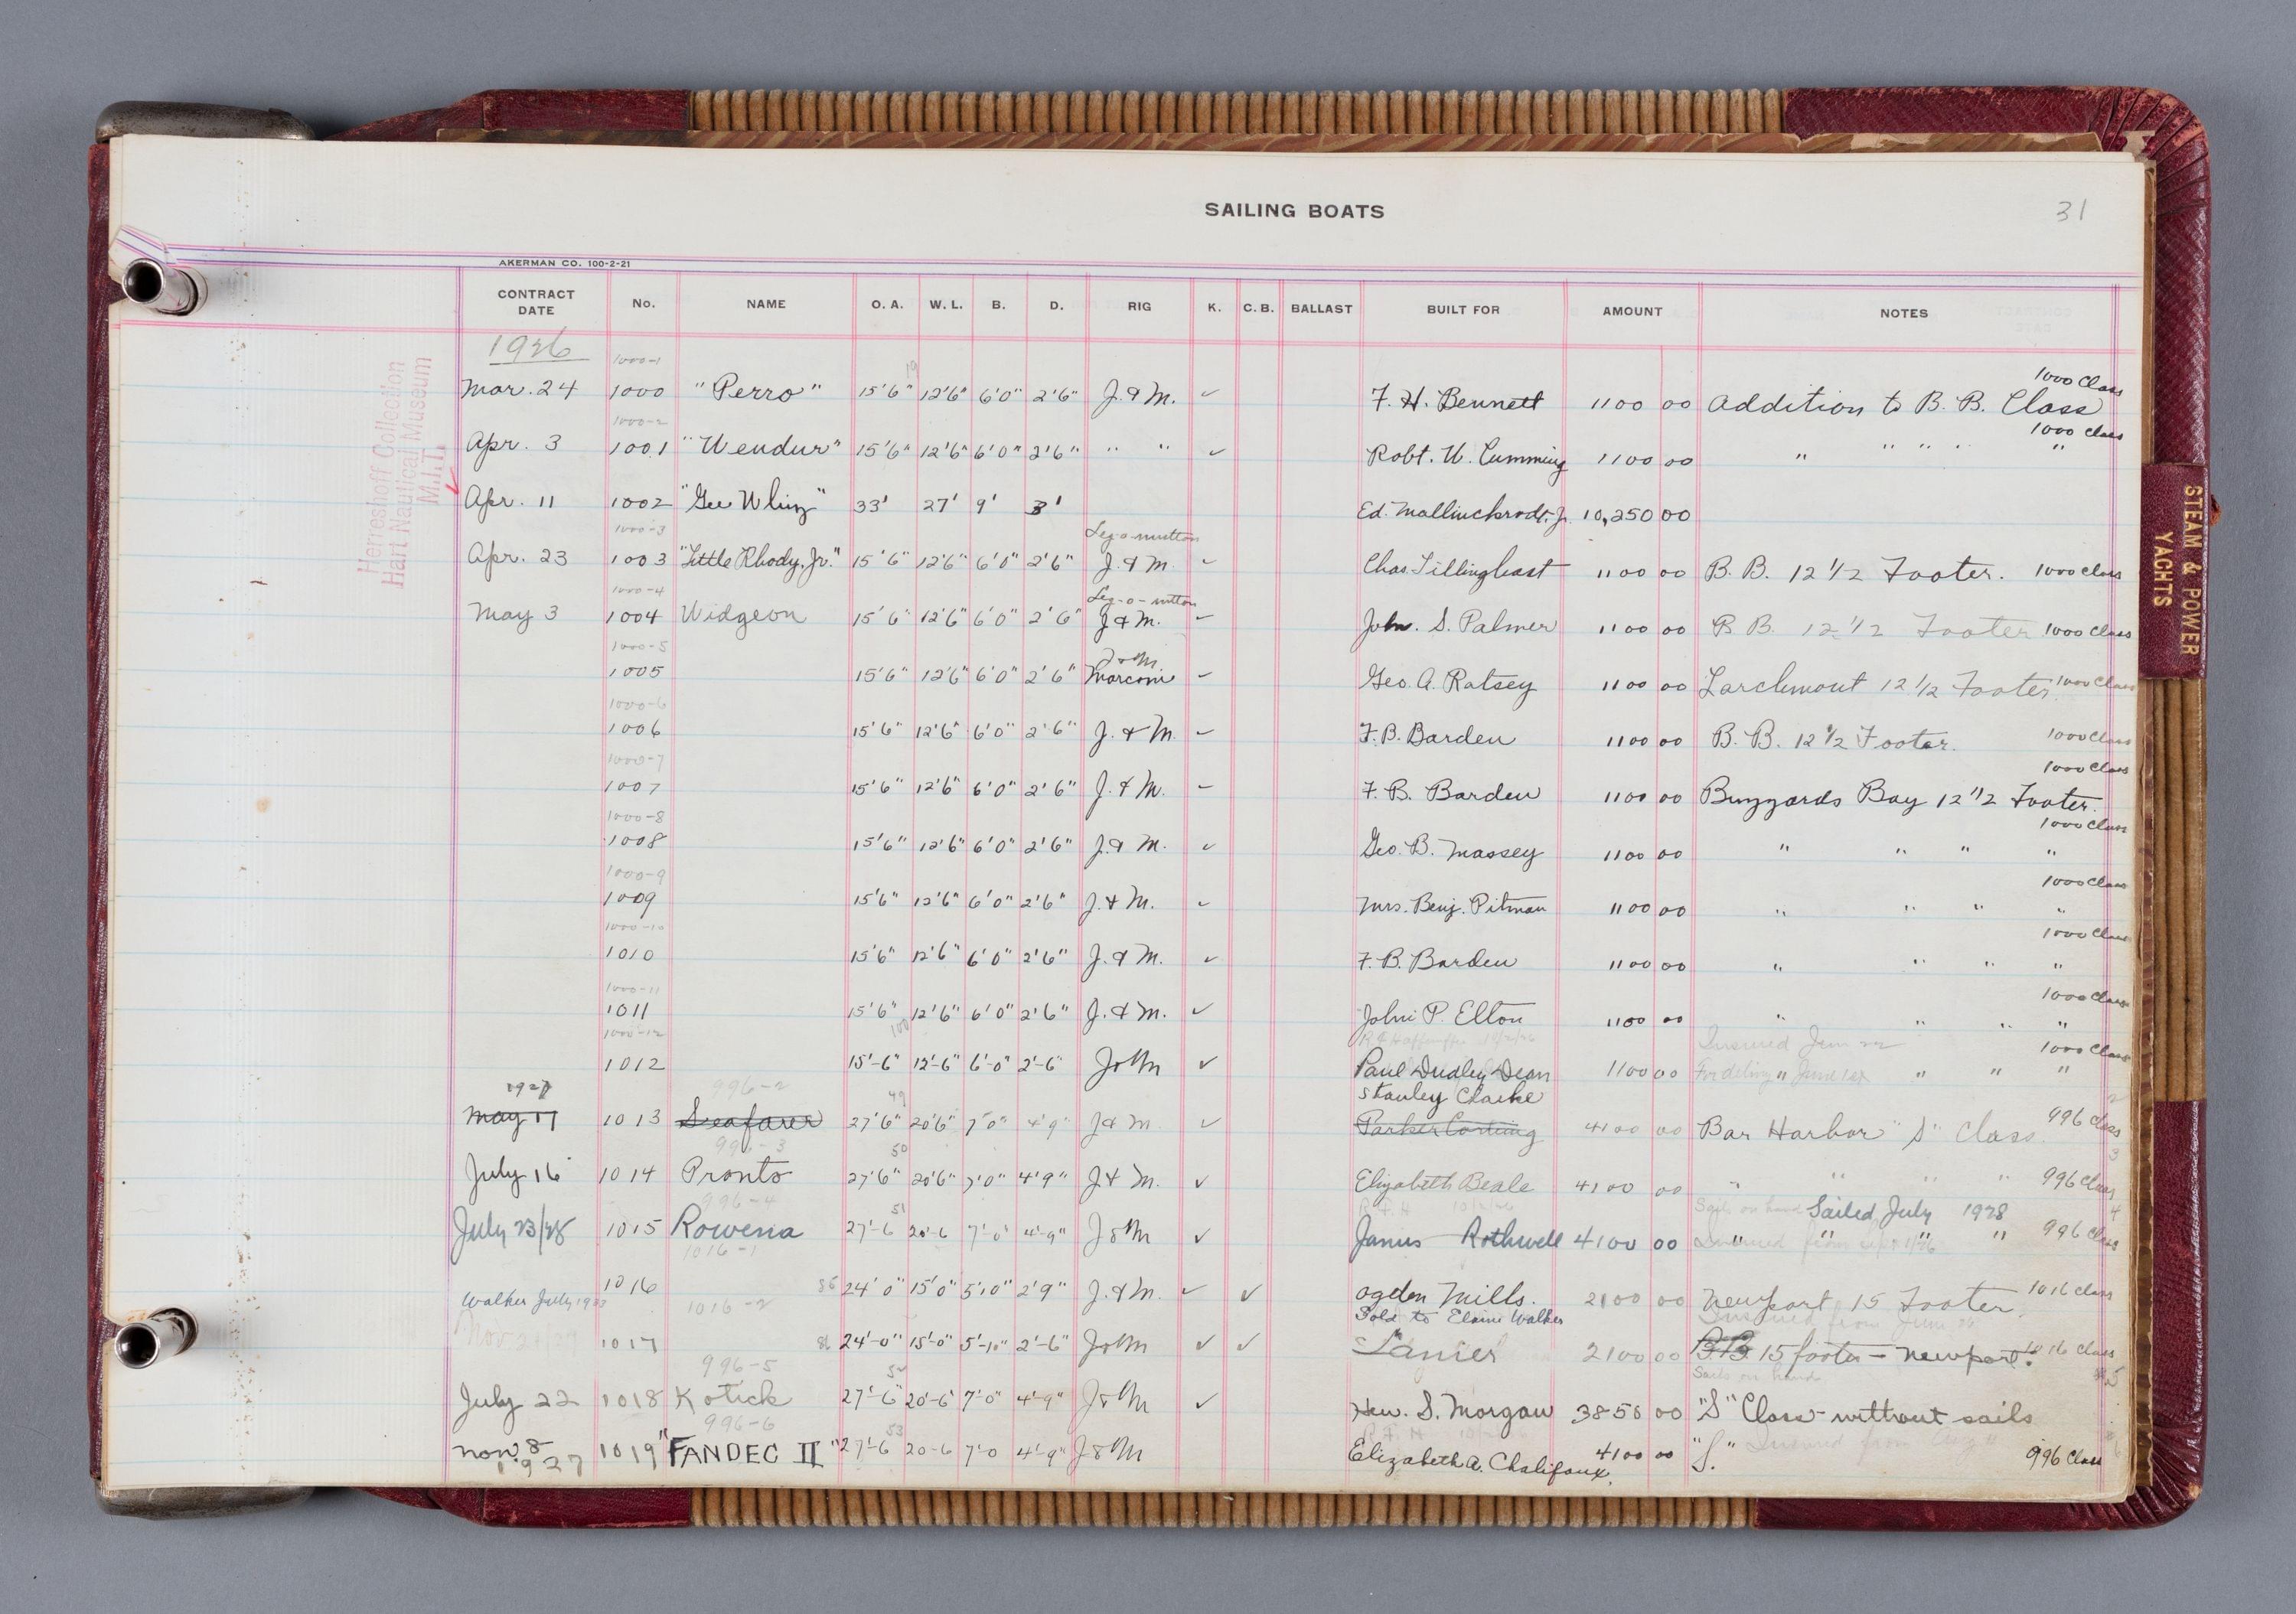 SAILING BOATS
31
AKERMAN CO. 100-2-21
CONTRACT DATE No. NAME O. A. W. L. B. D. RIG K. C. B. BALLAST BUILT FOR AMOUNT NOTES
1926
1000-1
1000 Class
Mar. 24 1000 "Perro" 15'6" 12'6" 6'0" 2'6" J. & M. ✓ F. H. Bennett 1100 00 Addition to B. B. Class
1000-2
1000 Class
Apr. 3 1001 "Wendur" 15'6" 12'6" 6'0" 2'6" " " ✓ Robt. W. Cumming 1100 00 " " " " "
Apr. 11 1002 "Gee Whiz" 33' 27' 9' 3' Ed. Mallinckrodt, Jr. 10,250 00
1000-3 Leg-o-mutton
Apr. 23 1003 "Little Rhody, Jr." 15'6" 12'6" 6'0" 2'6" J. & M. ✓ Chas. Tillinghast 1100 00 B. B. 12 1/2 Footer. 1000 Class
1000-4 Leg-o-mutton
May 3 1004 Widgeon 15'6" 12'6" 6'0" 2'6" J & M. ✓ John. S. Palmer 1100 00 B. B. 12 1/2 Footer 1000 Class
1000-5 J & M.
1005 15'6" 12'6" 6'0" 2'6" Marconi ✓ Geo. A. Ratsey 1100 00 Larchmont 12 1/2 Footer 1000 Class
1000-6
1006 15'6" 12'6" 6'0" 2'6" J. & M. ✓ F. B. Barden 1100 00 B. B. 12 1/2 Footer. 1000 Class
1000-7
1000 Class
1007 15'6" 12'6" 6'0" 2'6" J. & M. ✓ F. B. Barden 1100 00 Buzzards Bay 12 1/2 Footer.
1000-8
1000 Class
1008 15'6" 12'6" 6'0" 2'6" J. & M. ✓ Geo. B. Massey 1100 00 " " " "
1000-9
1000 Class
1009 15'6" 12'6" 6'0" 2'6" J. & M. ✓ Mrs. Benj. Pitman 1100 00 " " " "
1000-10
1000 Class
1010 15'6" 12'6" 6'0" 2'6" J. & M. ✓ F. B. Barden 1100 00 " " " "
1000-11
1000 Class
1011 15'6" 12'6" 6'0" 2'6" J. & M. ✓ John P. Elton 1100 00 " " " "
1000-12 100 Insured Jun 22
1000 Class
1012 15'-6" 12'-6" 6'-0" 2'-6" J & M ✓ Paul Dudley Dean 1100 00 " " " "
1927 996-2 49 Stanley Clarke
May 17 1013 Seafarer 27'6" 20'6" 7'0" 4'9" J & M. ✓ Parker Corning 4100 00 Bar Harbor "S" Class. 996 Class 2
996-3 50
July 16 1014 Pronto 27'6" 20'6" 7'0" 4'9" J & M. ✓ Elizabeth Beale 4100 00 " " " " 996 Class 3
996-4 51 Sails on hand Sailed July 1928
July 23/28 1015 Rowena 27'-6 20'-6 7'-0" 4'-9" J & M ✓ James Rothwell 4100 00 " " " " 996 Class 4
1016-1
1016 86 24'0" 15'0" 5'10" 2'9" J. & M. ✓ ✓ Ogden Mills. 2100 00 Newport 15 Footer. 1016 Class
Walker July 1933 1016-2 Sold to Elaine Walker Insured from June
1017 86 24'-0" 15'-0" 5'-10" 2'-6" J & M ✓ ✓ Lanier 2100 00 B.B. 15 footer - Newport. 1016 Class
996-5 52 Sails on hand
July 22 1018 Kotick 27'-6" 20'-6" 7'-0" 4'-9" J & M ✓ Hen. S. Morgan 3850 00 "S" Class - without sails 5
996-6 53
Nov. 8 1927 1019 "FANDEC II" 27'-6 20-6 7'-0 4'-9" J & M Elizabeth A. Chalifoux. 4100 00 "S." 996 Class
Herreshoff Collection
Hart Nautical Museum
M.I.T.
STEAM & POWER
YACHTS